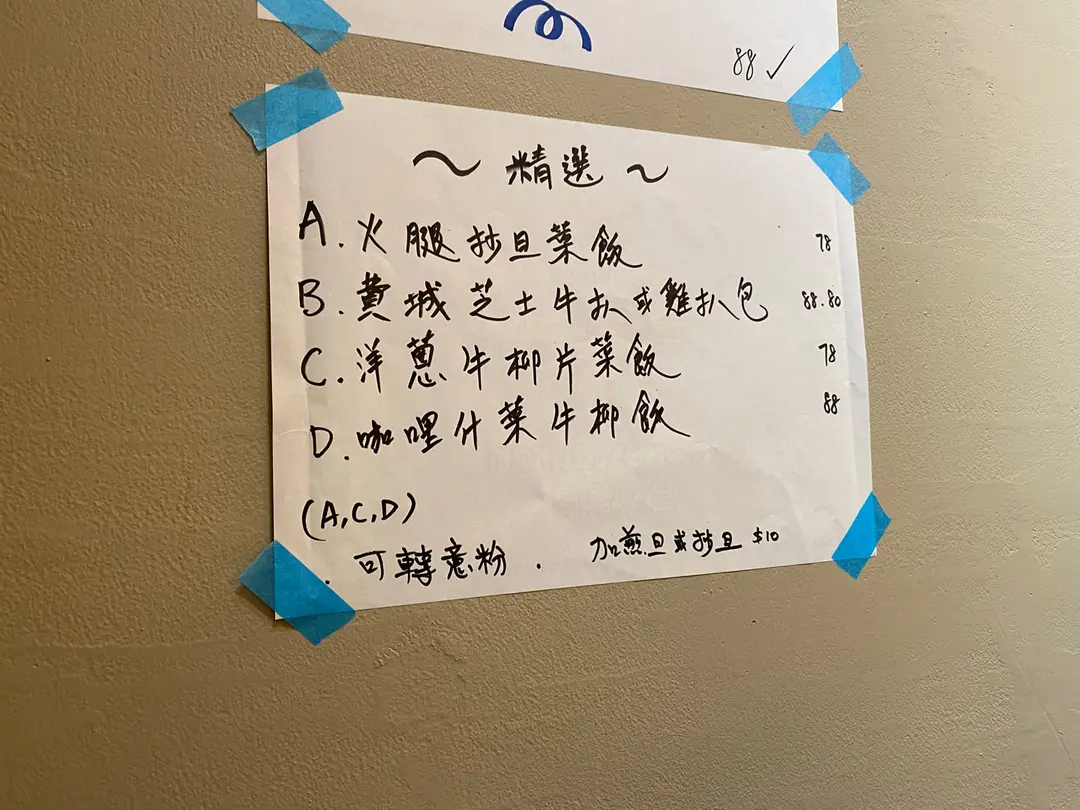 88 ✓
～ 精選 ～
A. 火腿抄旦菜飯 78
B. 費城芝士牛扒或雞扒包 88.80
C. 洋蔥牛柳片菜飯 78
D. 咖哩什菜牛柳飯 88
(A,C,D)
. 可轉意粉 . 加煎旦或抄旦 $10